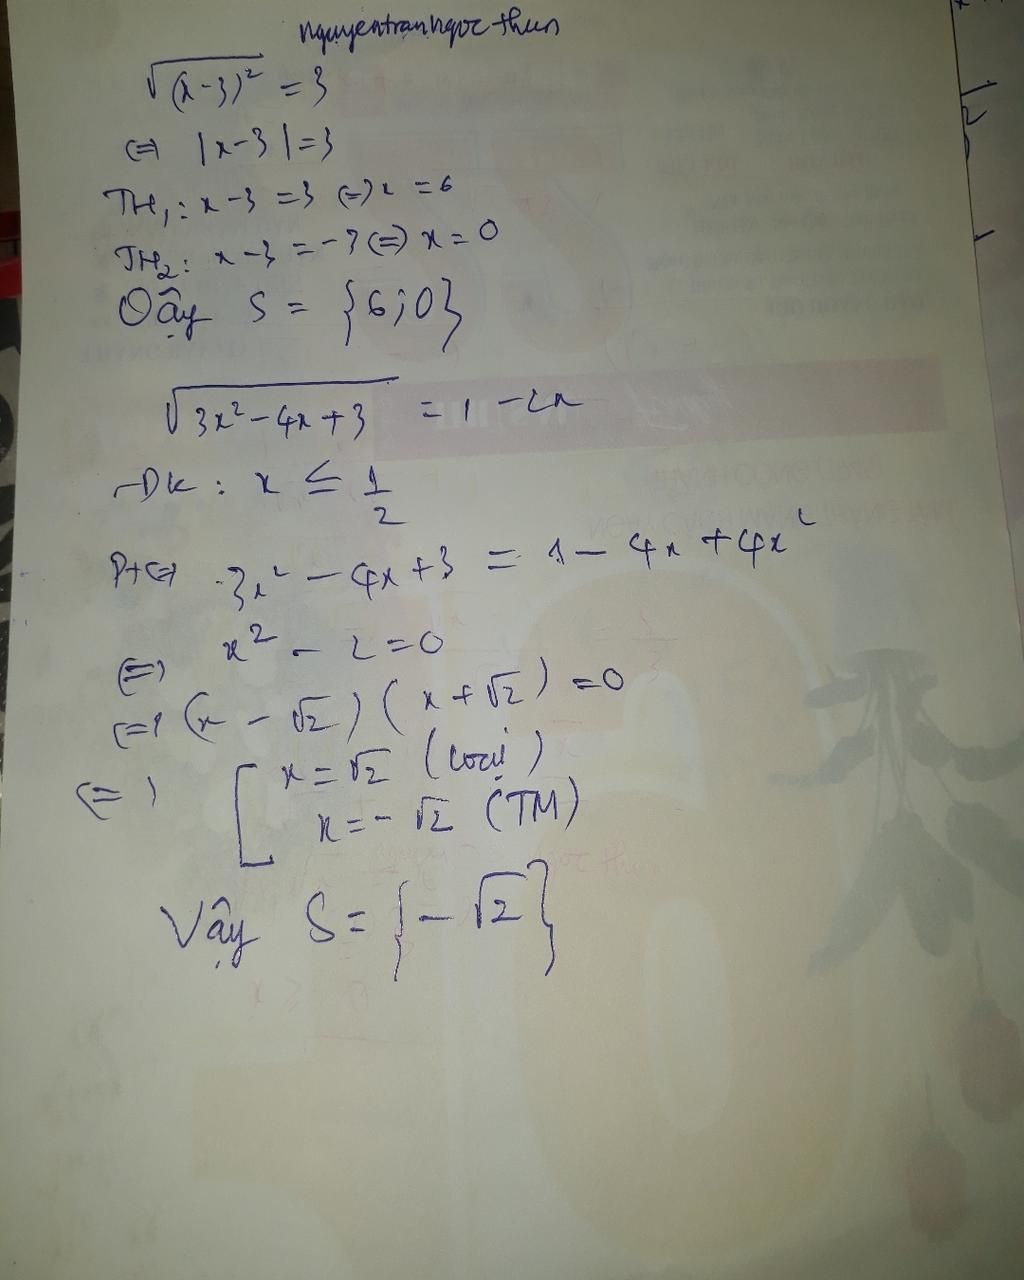 nguyentranngoc thun
√(x-3)² = 3
⇔ |x-3|=3
TH₁: x-3 = 3 ⇔ x = 6
TH₂: x-3 = -3 ⇔ x = 0
Vậy S = {6;0}
√3x²-4x+3 = 1-2x
ĐK: x ≤ 1/2
Pt⇔ 3x² - 4x+3 = 1 - 4x + 4x²
⇔ x² - 2=0
⇔ (x - √2) (x+√2) =0
⇔ [ x = √2 (loại)
x = - √2 (TM)
Vậy S = {-√2}